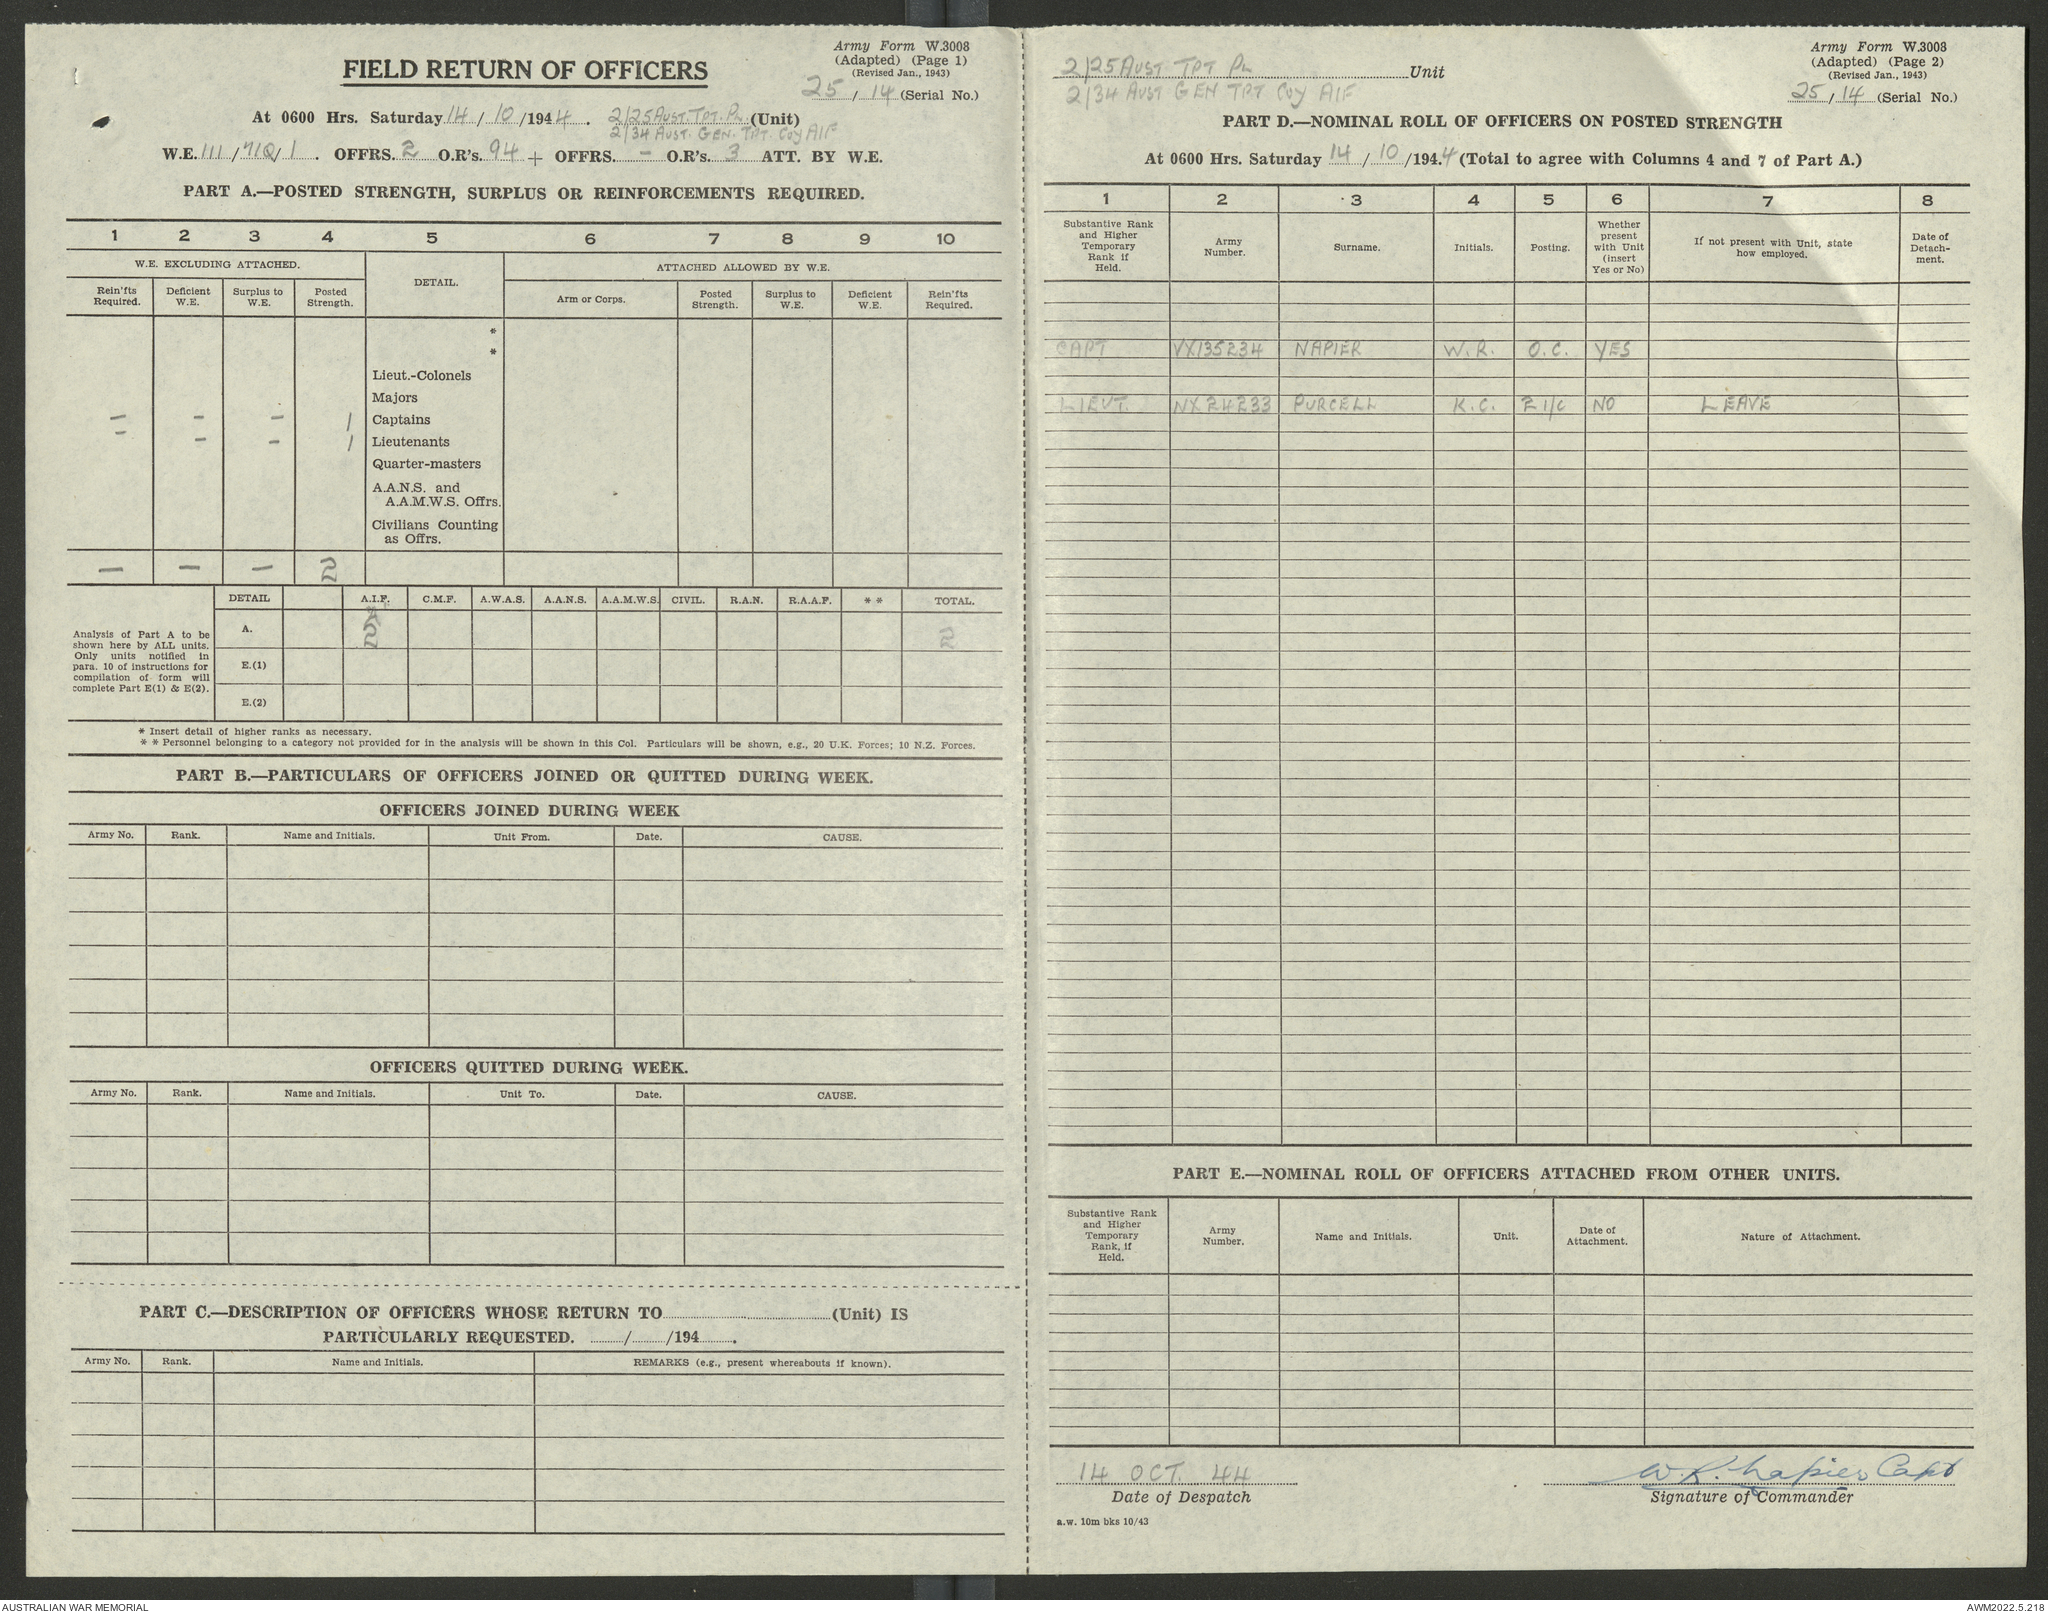 Army Form W.3008
(Adapted) (Page 1)
(Revised Jan., 1943)
25 / 14 (Serial No.)
FIELD RETURN OF OFFICERS
At 0600 Hrs. Saturday 14 / 10 /1944. 2/25 AUST. TPT. PL (Unit)
2/34 AUST. GEN. TPT. COY AIF
W.E. 111/71Q/1. OFFRS. 2 O.R's. 94 + OFFRS. – O.R's. 3 ATT. BY W.E.
PART A.—POSTED STRENGTH, SURPLUS OR REINFORCEMENTS REQUIRED.
1 2 3 4 5 6 7 8 9 10
W.E. EXCLUDING ATTACHED. DETAIL. ATTACHED ALLOWED BY W.E.
Rein'fts Required. Deficient W.E. Surplus to W.E. Posted Strength. Arm or Corps. Posted Strength. Surplus to W.E. Deficient W.E. Rein'fts Required.
*
*
Lieut.-Colonels
Majors
– – – 1 Captains
– – – 1 Lieutenants
Quarter-masters
A.A.N.S. and
A.A.M.W.S. Offrs.
Civilians Counting
as Offrs.
– – – 2
DETAIL A.I.F. C.M.F. A.W.A.S. A.A.N.S. A.A.M.W.S. CIVIL. R.A.N. R.A.A.F. * * TOTAL.
Analysis of Part A to be
shown here by ALL units.
Only units notified in
para. 10 of instructions for
compilation of form will
complete Part E(1) & E(2).
A. 2 2
E.(1)
E.(2)
* Insert detail of higher ranks as necessary.
* * Personnel belonging to a category not provided for in the analysis will be shown in this Col. Particulars will be shown, e.g., 20 U.K. Forces; 10 N.Z. Forces.
PART B.—PARTICULARS OF OFFICERS JOINED OR QUITTED DURING WEEK.
OFFICERS JOINED DURING WEEK
Army No. Rank. Name and Initials. Unit From. Date. CAUSE.
OFFICERS QUITTED DURING WEEK.
Army No. Rank. Name and Initials. Unit To. Date. CAUSE.
PART C.—DESCRIPTION OF OFFICERS WHOSE RETURN TO (Unit) IS
PARTICULARLY REQUESTED. / /194 .
Army No. Rank. Name and Initials. REMARKS (e.g., present whereabouts if known).
2/25 AUST. TPT PL Unit
2/34 AUST GEN TPT COY AIF
Army Form W.3008
(Adapted) (Page 2)
(Revised Jan., 1943)
25 / 14 (Serial No.)
PART D.—NOMINAL ROLL OF OFFICERS ON POSTED STRENGTH
At 0600 Hrs. Saturday 14 / 10 /194.4 (Total to agree with Columns 4 and 7 of Part A.)
1 2 3 4 5 6 7 8
Substantive Rank and Higher Temporary Rank if Held. Army Number. Surname. Initials. Posting. Whether present with Unit (insert Yes or No) If not present with Unit, state how employed. Date of Detach-ment.
CAPT VX135234 NAPIER W.R. O.C. YES
LIEUT. NX24233 PURCELL K.C. 2 I/C NO LEAVE
PART E.—NOMINAL ROLL OF OFFICERS ATTACHED FROM OTHER UNITS.
Substantive Rank and Higher Temporary Rank, if Held. Army Number. Name and Initials. Unit. Date of Attachment. Nature of Attachment.
14 OCT. 44
Date of Despatch
W.R. Napier Capt
Signature of Commander
a.w. 10m bks 10/43
AUSTRALIAN WAR MEMORIAL
AWM2022.5.218